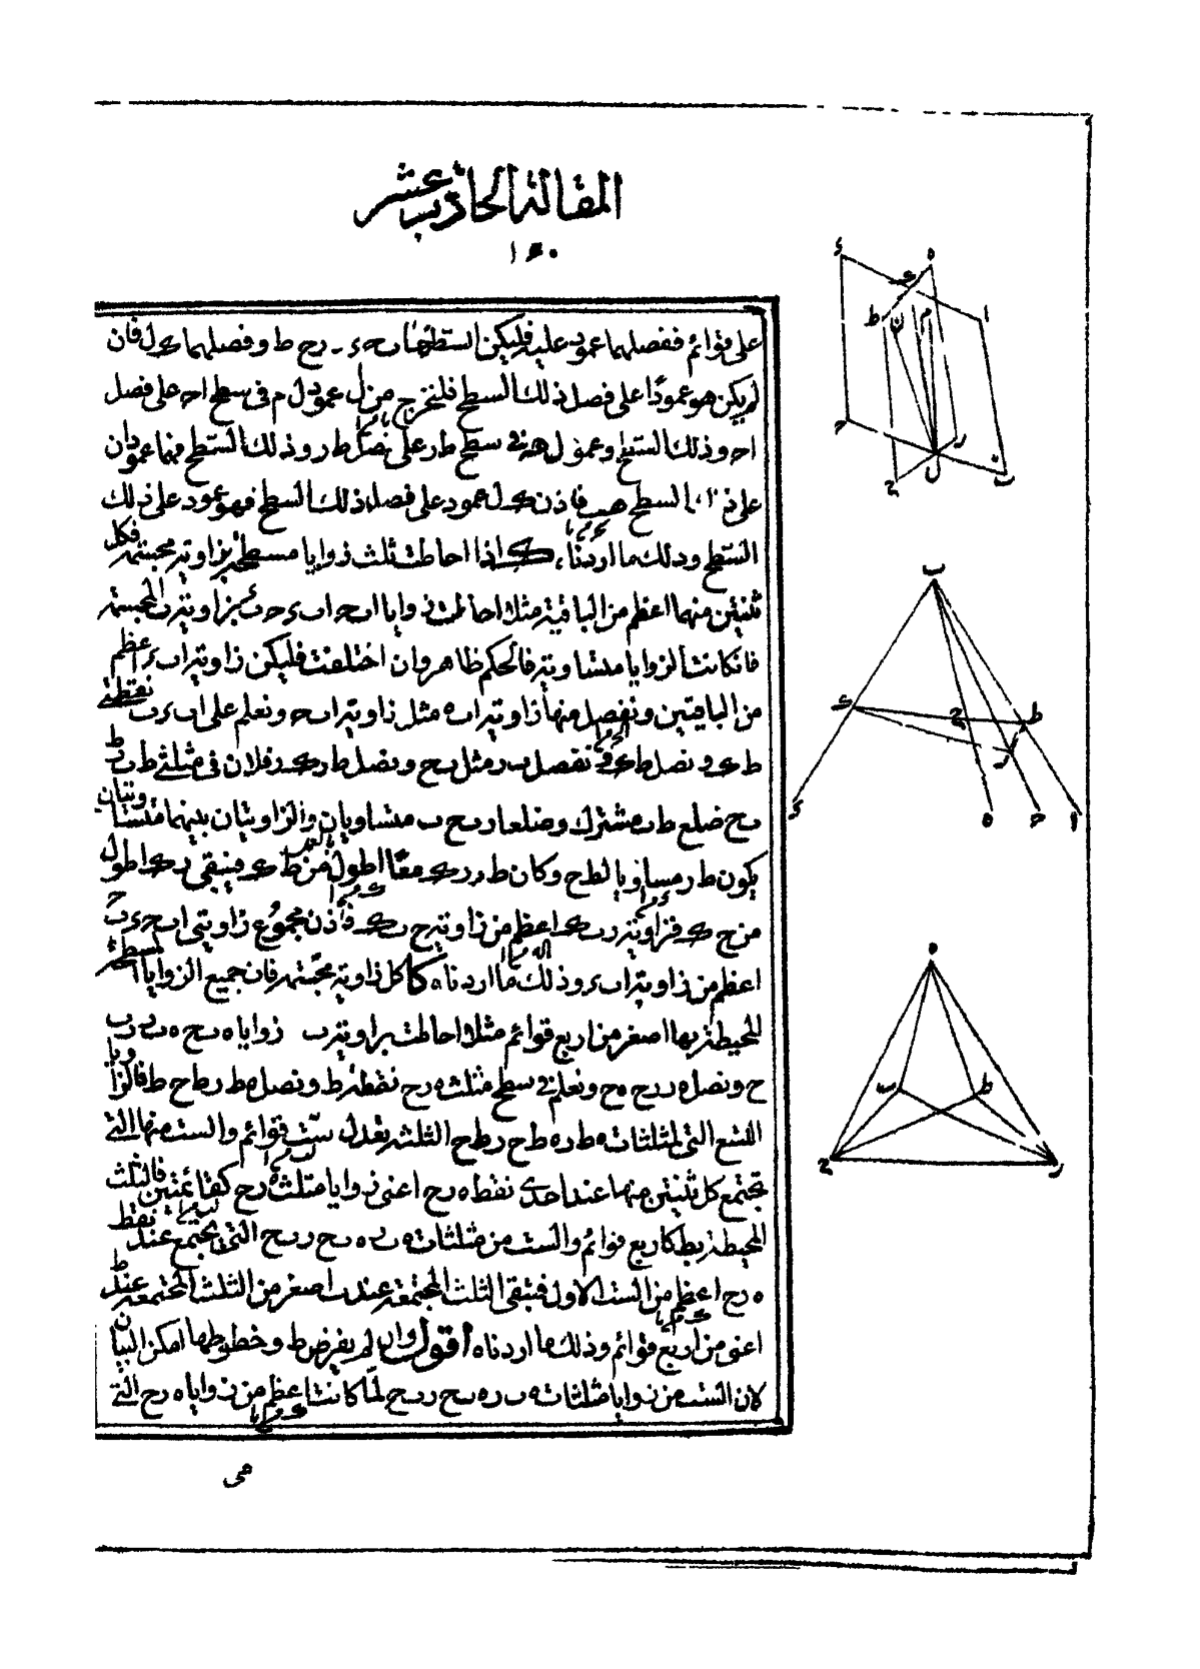 المقالة الحادية عشر
١٤٠
على قوائم ففصلهما عمود عليه فليكن السطحان ا ب ح ء ـ ه ر ح ط وفصلهما ك ل فان
لم يكن هو عمودًا على فصل ذلك السطح فلنخرج من ل عمود ل م فى سطح ا ح على فصل
ا ح وذلك السطح وعمود ل ن فى سطح ط ر على فصل ط ر وذلك السطح فهما عمودان
على السطح هف فاذن ك ل عمود على فصل ذلك السطح فهو عمود على ذلك
السطح وذلك ما اردنا ك اذا احاطت ثلث زوايا مسطحة بزاوية مجسمة فكل
ثنتين منهما اعظم من الباقية مثلا احاطت زوايا ا ب ح ا ب ء ح ب ء بزاوية ب المجسمة
فان كانت الزوايا متساوية فالحكم ظاهر وان اختلفت فليكن زاوية ا ب ء اعظم
من الباقيتين ونفصل منها زاوية ا ب ه مثل زاوية ا ب ح ونعلم على ا ب ء ب نقطتى
ط ك ونصل ط ك ونفصل ب ر مثل ب ح ونصل ط ر ك ر فلان فى مثلثى ط ب ر ط
ب ح ضلع ط ب مشترك وضلعا ر ب ح ب متساويان والزاويتان بينهما متساويتان
يكون ط ر مساويا لط ح وكان ط ر ر ك معًا اطول من ط ك فيبقى ر ك اطول
من ح ك فزاوية ر ب ك اعظم من زاوية ح ب ك فاذن مجموع زاويتى ا ب ح ء ب ح
اعظم من زاوية ا ب ء وذلك ما اردناه كا كل زاوية مجسمة فان جميع الزوايا المسطحة
المحيطة بها اصغر من اربع قوائم مثلا احاطت بزاوية ب زوايا ه ب ح ه ب ر ر ب
ح ونصل ه ر ر ح ه ح ونعلم فى سطح مثلث ه ر ح نقطة ط ونصل ه ط ر ط ح ط فالزوايا
التسع التى لمثلثات ه ط ر ه ط ح ر ط ح الثلث تعدل ست قوائم والست منها التى
تجتمع كل ثنتين منها عند احدى نقط ه ر ح اعنى زوايا مثلث ه ر ح كقائمتين فالثلث
المحيطة بط كاربع قوائم والست من مثلثات ه ب ر ه ب ح ر ب ح التى تجتمع عند نقط
ه ر ح اعظم من الست الاول فتبقى الثلث المجتمعة عند ب اصغر من الثلث المجتمعة عند ط
اعنى من اربع قوائم وذلك ما اردناه اقول وان لم يفرض ط وخطوطها امكن البيان
لان الست من زوايا مثلثات ه ب ر ه ب ح ر ب ح لما كانت اعظم من زوايا ه ر ح التى
هى